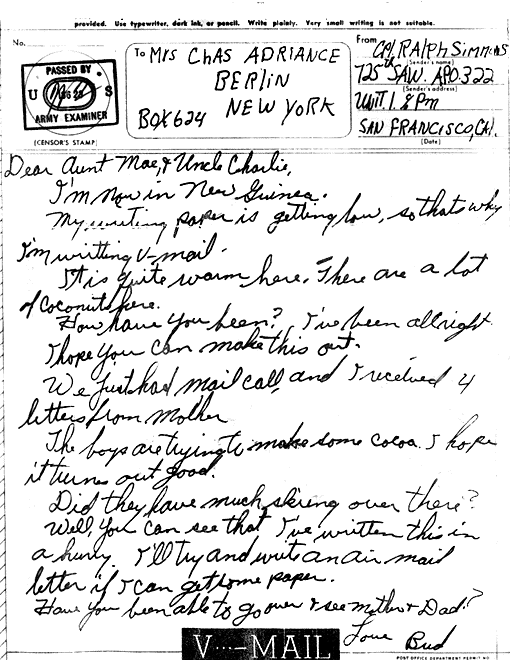 provided. Use typewriter, dark ink, or pencil. Write plainly. Very small writing is not suitable.
No.
PASSED BY
U S
ARMY EXAMINER
(CENSOR'S STAMP)
To MRS CHAS ADRIANCE
BERLIN
BOX 624 NEW YORK
From
CPL. RALPH SIMMONS
(Sender's name)
725th SAW. APO. 322
(Sender's address)
UNIT. 1. 8 Pm
SAN FRANCISCO, CAL.
(Date)
Dear Aunt Mae, & Uncle Charlie,
I'm now in New Guinea.
My writing paper is getting low, so thats why
I'm writting V-mail.
It is quite warm here. There are a lot
of coconuts here.
How have you been? I've been allright.
I hope you can make this out.
We just had mail call, and I received 4
letters from Mother
The boys are trying to make some cocoa. I hope
it turns out good.
Did they have much skiing over there?
Well, you can see that I've written this in
a hurry. I'll try and write an air mail
letter if I can get some paper.
Have you been able to go over & see mother & Dad?
Love Bud
V···—MAIL
POST OFFICE DEPARTMENT PERMIT NO